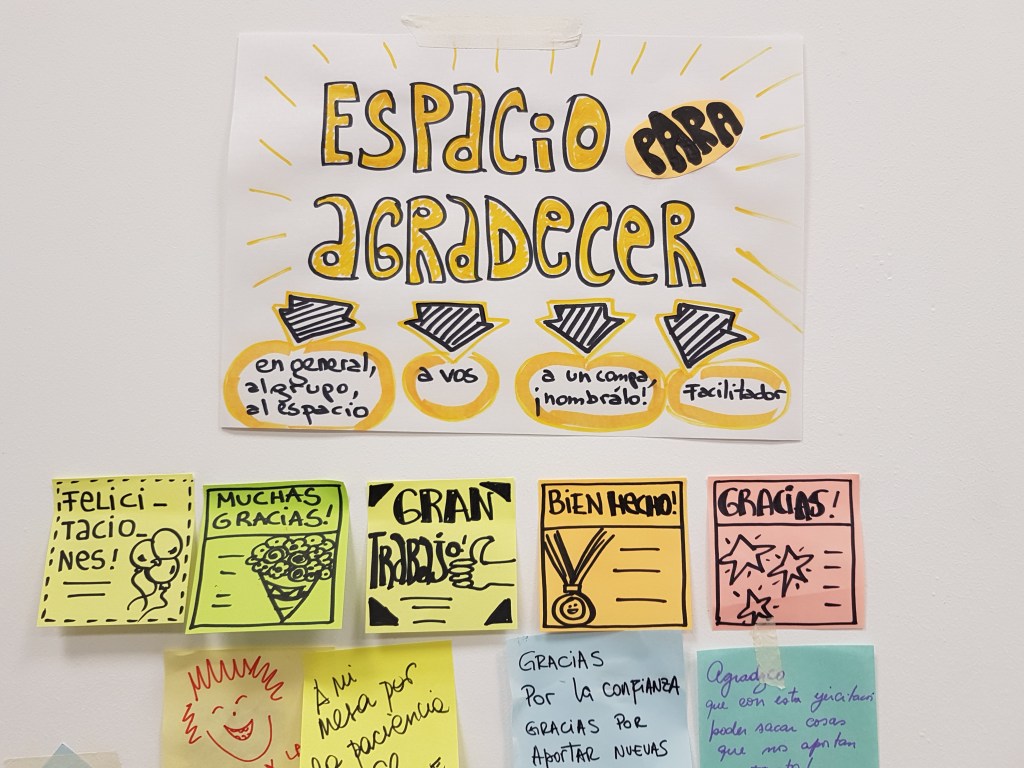 ESPACIO PARA
AGRADECER
en general,
al grupo,
al espacio
a vos
a un compa,
¡nombrálo!
Facilitador
FELICI-
TACIO-
NES!
MUCHAS
GRACIAS!
GRAN
TRABAJO!
BIEN HECHO!
GRACIAS!
A mi
mesa por
la paciencia
GRACIAS
Por la CONFIANZA
GRACIAS POR
APORTAR NUEVAS
Agradezco
que con esta
poder sacar cosas
que nos aportan